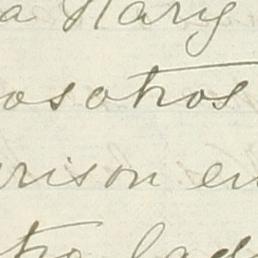 a Mary
osotros
rison en
tro lado